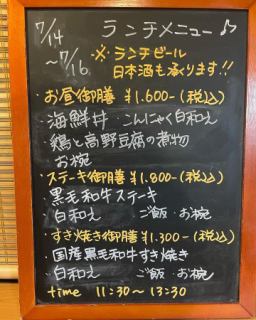 7/14
~7/16
ランチメニュー♪
※ランチビール
日本酒も承ります!!
・お昼御膳 ¥1.600-(税込)
・海鮮丼 こんにゃく白和え
・鶏と高野豆腐の煮物
お椀
・ステーキ御膳 ¥1.800-(税込)
・黒毛和牛ステーキ
・白和え ご飯 お椀
・すき焼き御膳 ¥1.300-(税込)
・国産黒毛和牛すき焼き
・白和え ご飯 お椀
time 11:30~13:30